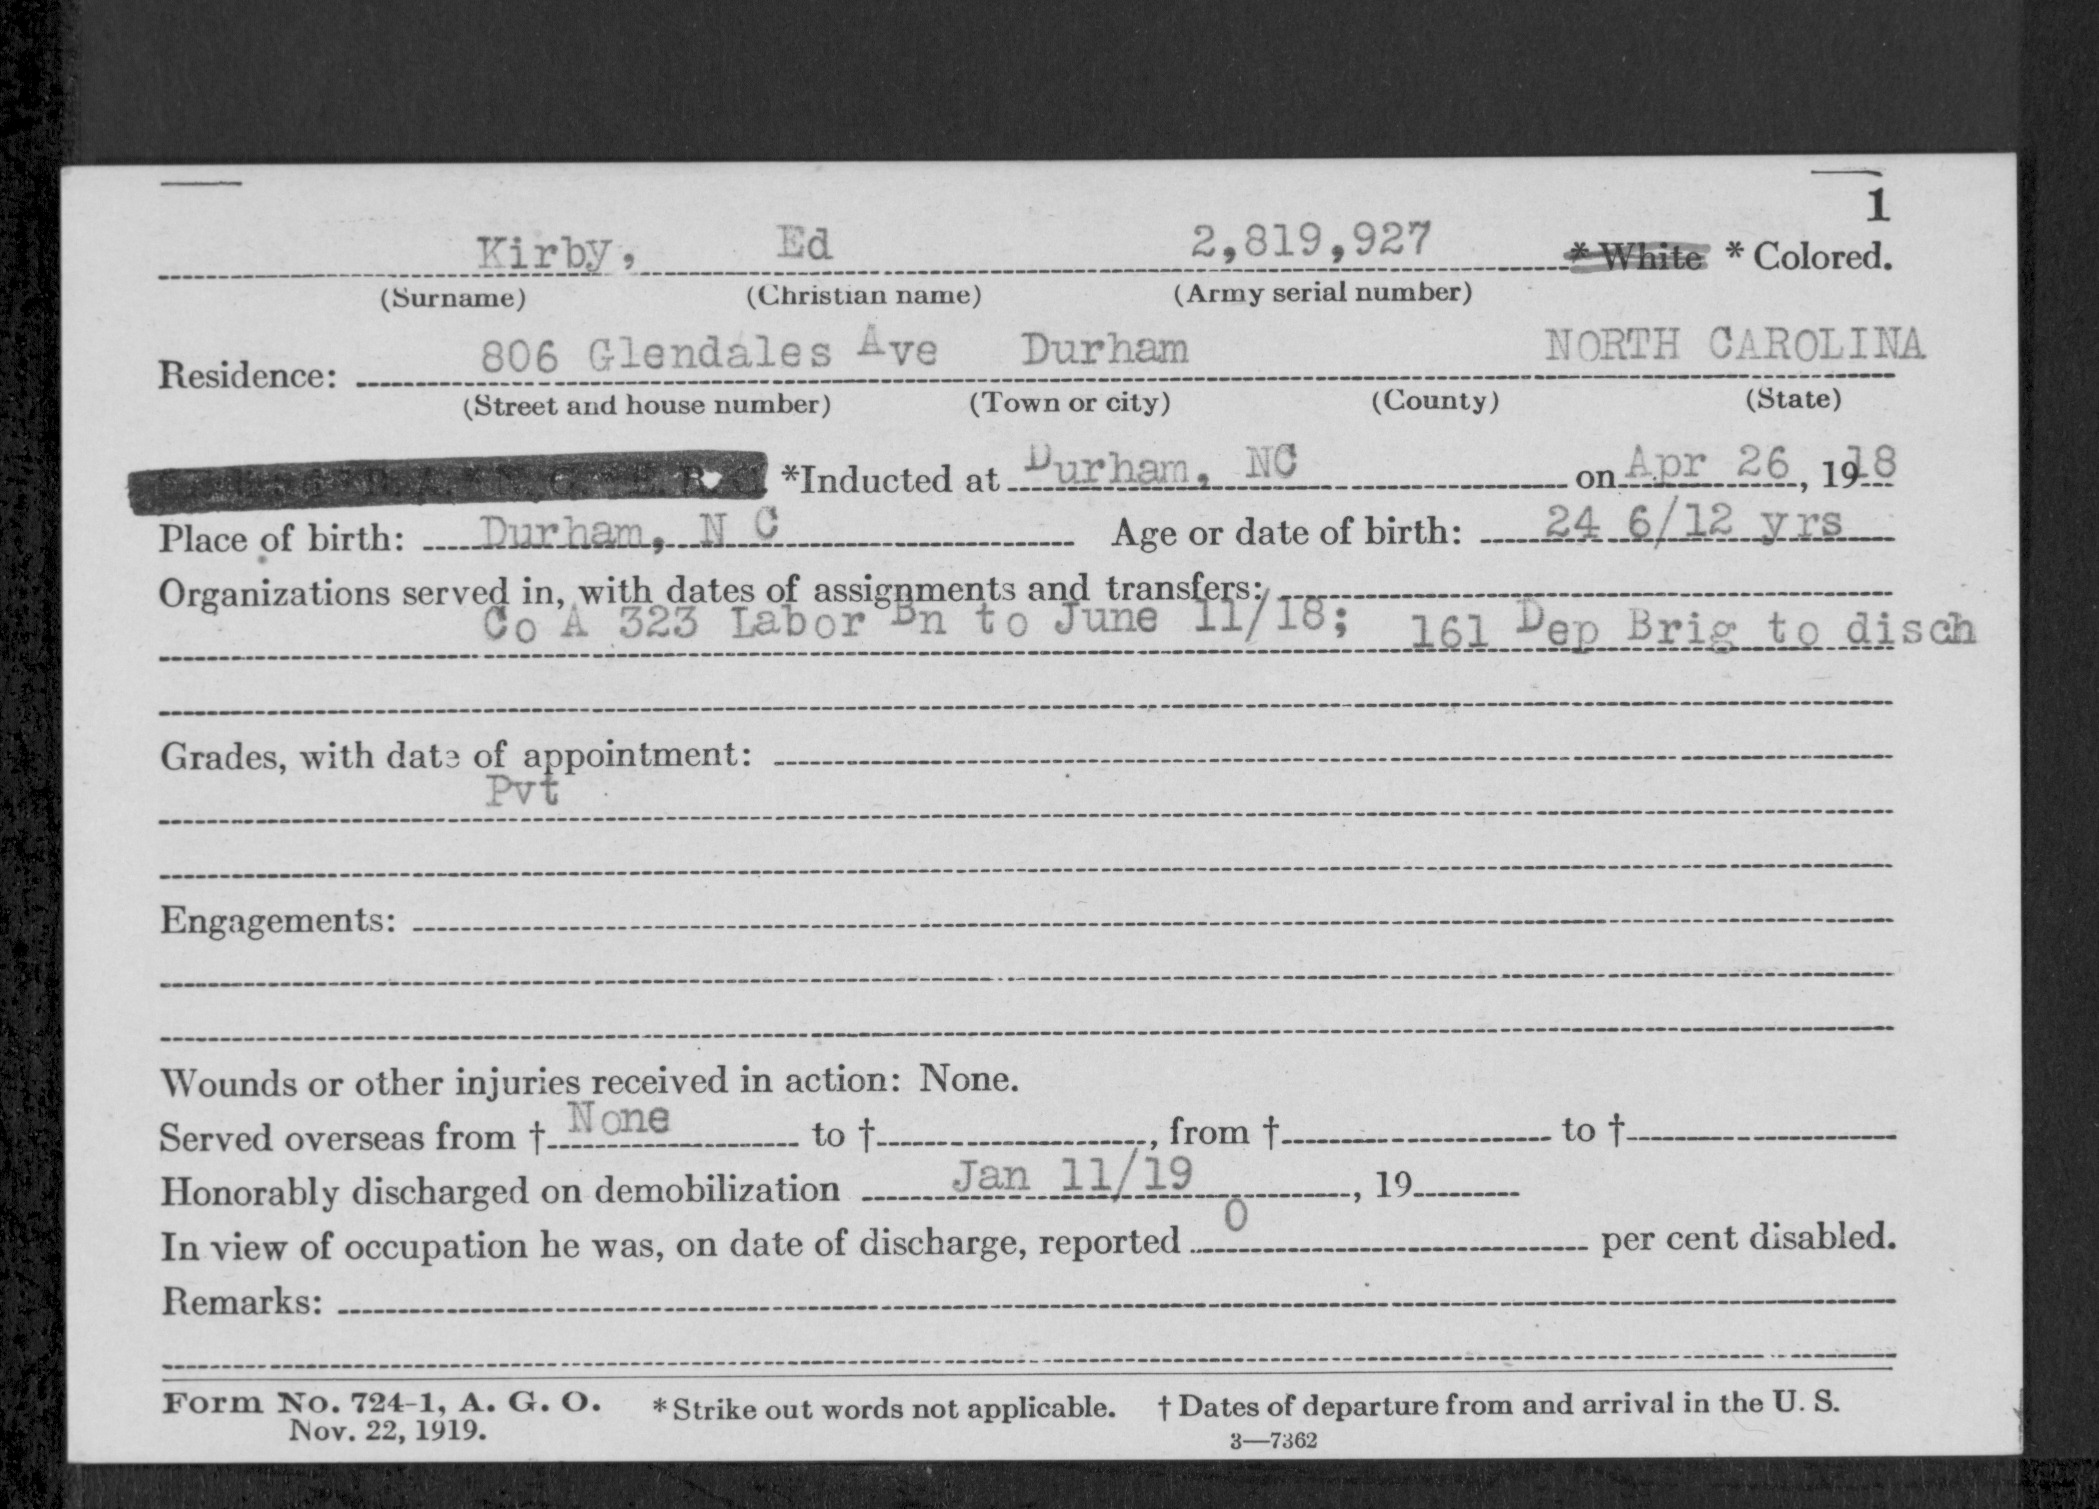 1
Kirby, Ed 2,819,927 * White * Colored.
(Surname) (Christian name) (Army serial number)
806 Glendales Ave Durham NORTH CAROLINA
Residence:
(Street and house number) (Town or city) (County) (State)
*Inducted at Durham, NC on Apr 26, 1918
Place of birth: Durham, N C Age or date of birth: 24 6/12 yrs
Organizations served in, with dates of assignments and transfers:
Co A 323 Labor Bn to June 11/18; 161 Dep Brig to disch
Grades, with date of appointment:
Pvt
Engagements:
Wounds or other injuries received in action: None.
Served overseas from † None to †, from † to †
Honorably discharged on demobilization Jan 11/19, 19
In view of occupation he was, on date of discharge, reported 0 per cent disabled.
Remarks:
Form No. 724-1, A. G. O. * Strike out words not applicable. † Dates of departure from and arrival in the U. S.
Nov. 22, 1919.
3—7362